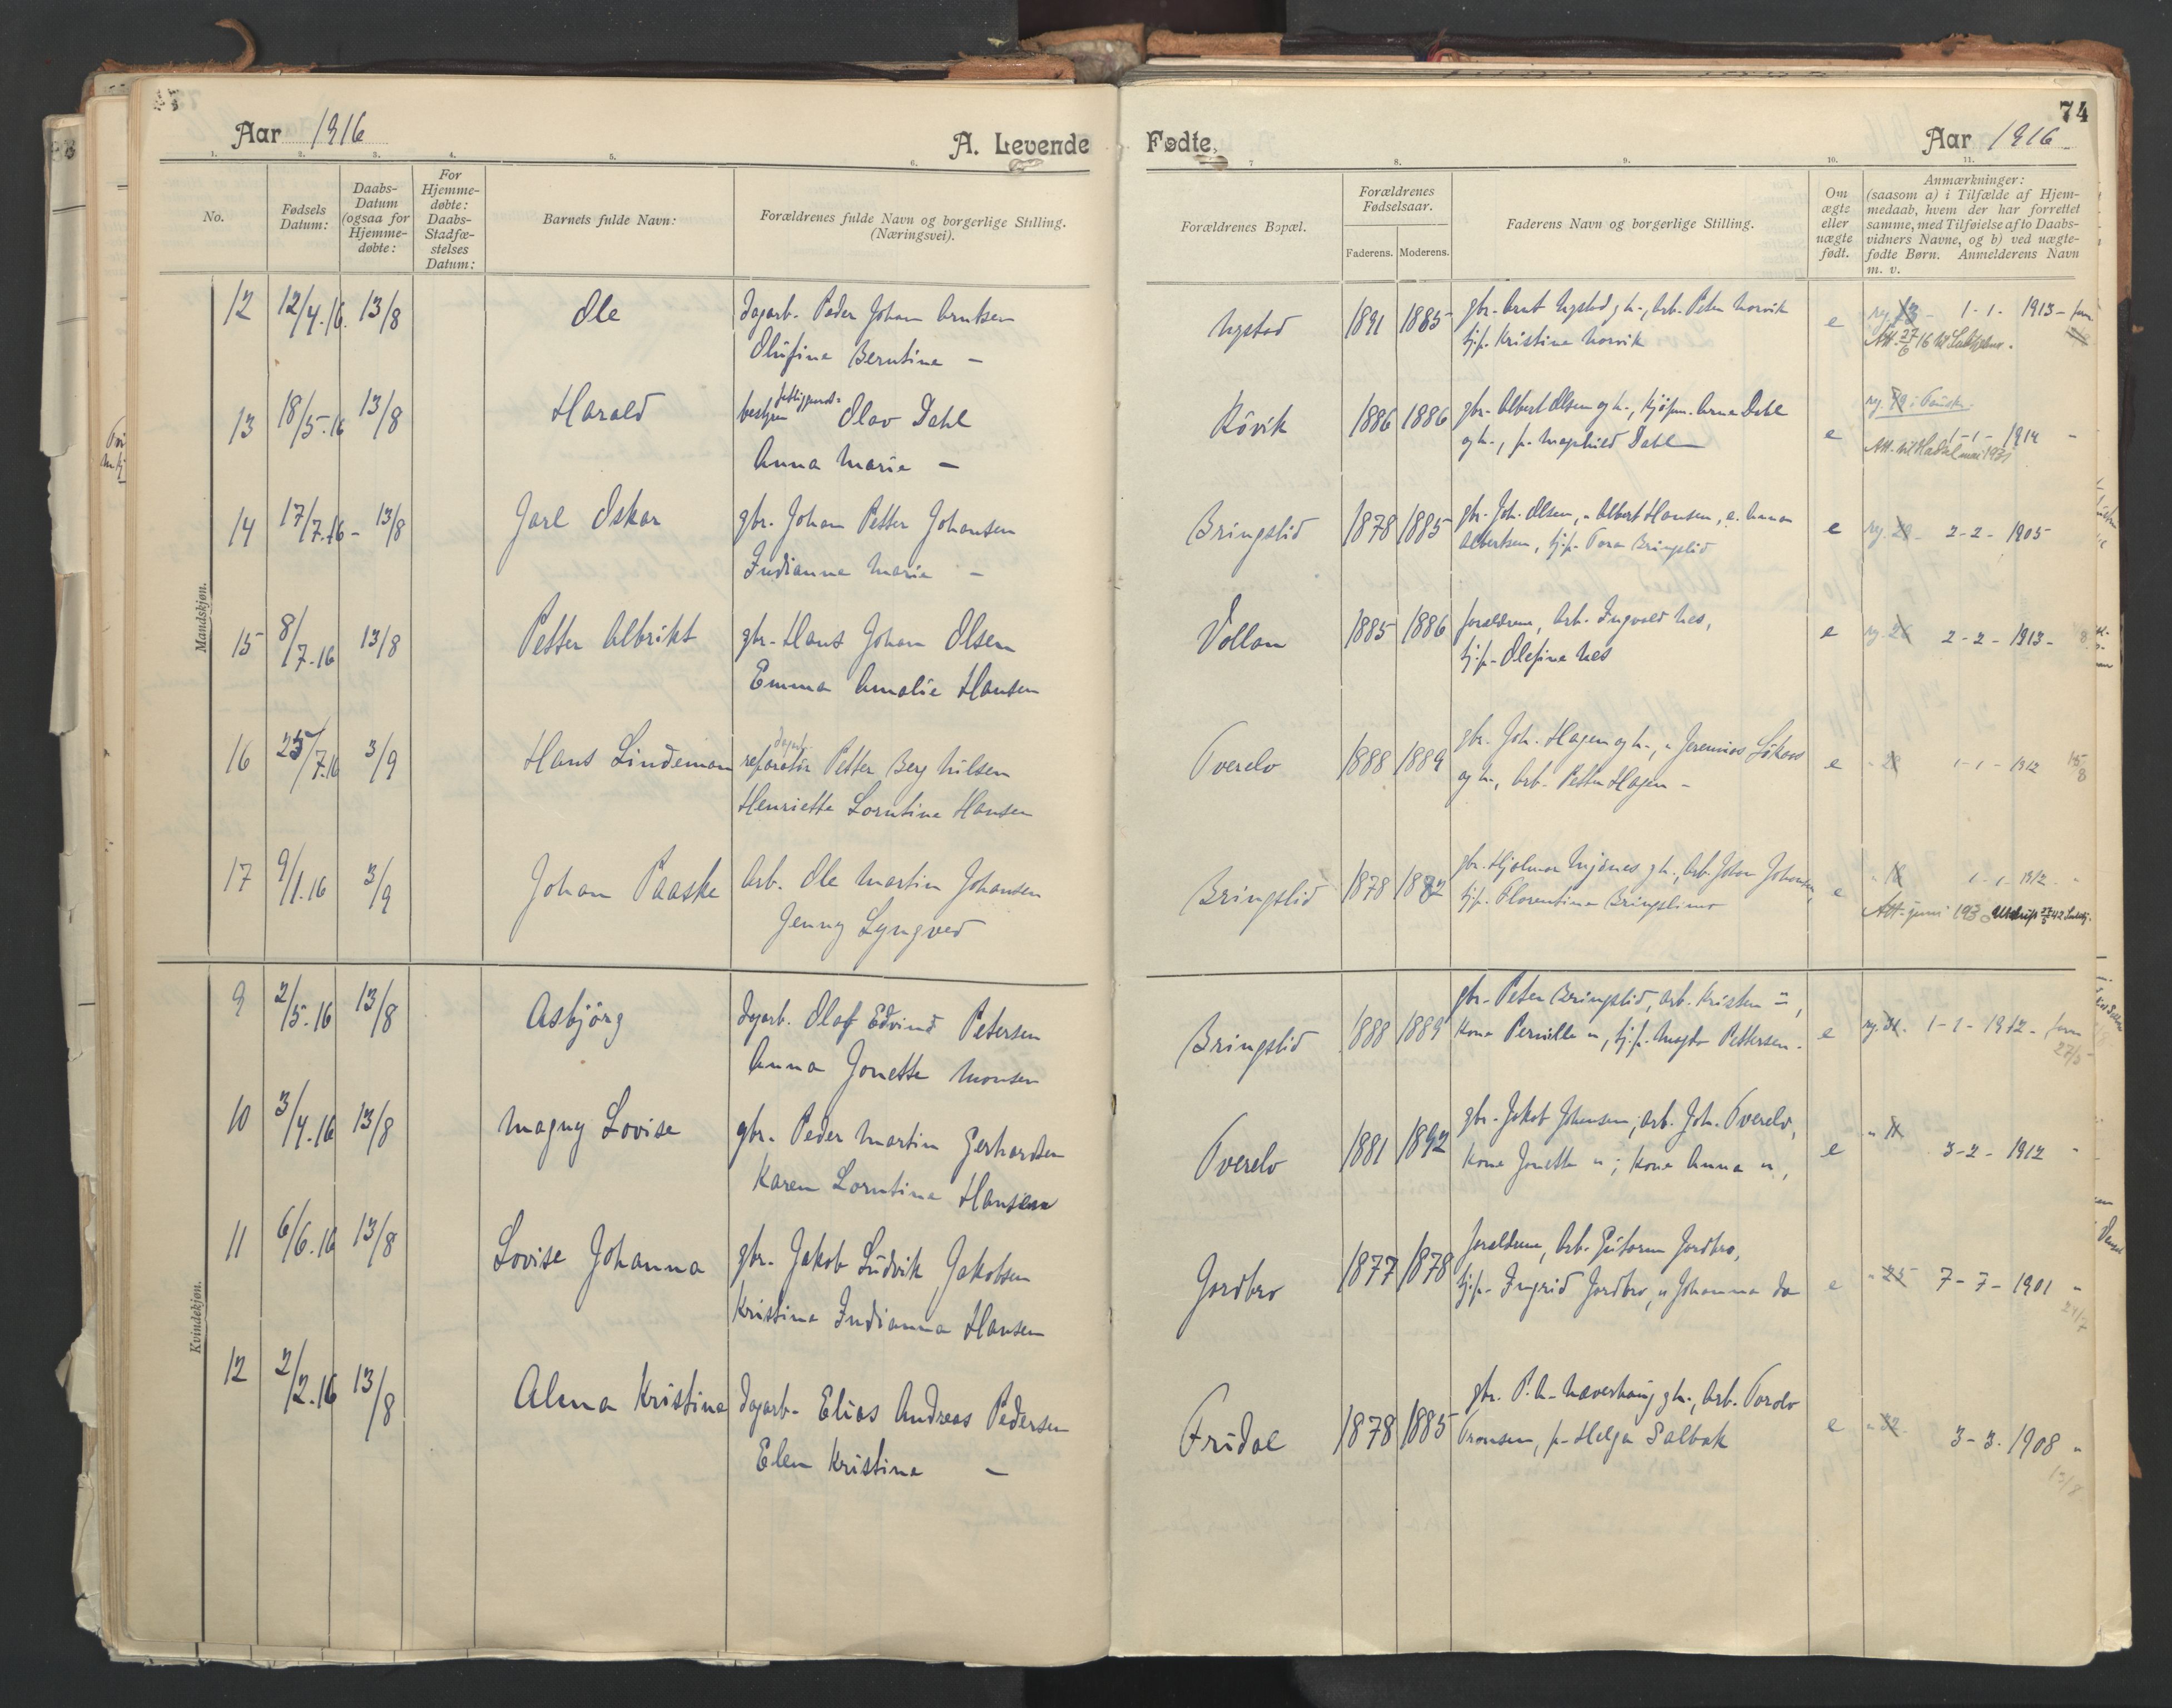 74
Aar 1916
A. Levende
Fødte.
Aar 1916
1. 2. 3. 4. 5. 6. 7 8. 9. 10. 11.
No.
Fødsels Datum:
Daabs-Datum (ogsaa for Hjemme-døbte:
For Hjemme-døbte: Daabs-Stadfæ-stelses Datum:
Barnets fulde Navn:
Forældrenes fulde Navn og borgerlige Stilling.
(Næringsvei).
Forældrenes Bopæl.
Forældrenes Fødselsaar.
Faderens. Moderens.
Faderens Navn og borgerlige Stilling.
Om ægte eller uægte født.
Anmærkninger:
(saasom a) i Tilfælde af Hjem-
medaab, hvem der har forrettet
samme, med Tilføielse af to Daabs-
vidners Navne, og b) ved uægte-
fødte Børn. Anmelderens Navn
m. v.
Mandskjøn.
12 12/4.16. 13/8 Ole Dagarb. Peder Johan Arntsen
Olufine Berntine —
Nystad 1891 1885 gbr. Arnt Nystad g h., Arb. Peter Norvik
tj.p. Kristine Norvik
e 1-1- 1913-
13 18/5.16 13/8 Harald bestyrer Olav Dahl
Anna Marie —
Rövik 1886 1886 gbr. Albert Olsen og h., Kjöpm. Arne Dahl
og h., p. Magnhild Dahl
e 1-1- 1914 -
14 17/7.16- 13/8 Jarl Oskar gbr. Johan Petter Johansen
Indianna Marie —
Bringslid 1878 1885 gbr. Joh. Olsen, " Albert Hansen, e. Anna
Albertsen, tj.p. Tora Bringslid
e 2-2- 1905
15 8/7.16 13/8 Petter Albrikt gbr. Hans Johan Olsen
Emma Amalie Hansen
Vollan 1885 1886 forældrene, Arb. Ingvald Nes,
tj.p. Olefine Nes
e 2-2- 1913-
16 25/7.16 3/9 Hans Lindeman reparatör Petter Berg Nilsen
Henriette Lorntine Hansen
Tverelv 1888 1889 gbr. Joh. Hagen og h., " Jeremias
og h., Arb. Petter Hagen -
e 1-1- 1912 15/8
17 9/1.16 3/9 Johan Paaske Arb. Ole Martin Johansen
Jenny Lyngved
Bringslid 1878 gbr. Hjalmar g h., Arb. Johan Johansen,
tj.p. Florentine Bringslimo
e 1-1- 1912
Att. juni 1930
Kvindekjøn.
9 2/5.16 13/8 Asbjörg Dagarb. Olaf Edvind Petersen
Anna Jonette Monsen
Bringslid 1888 1889 gbr. Peter Bringslid, Arb. Kristen ",
Kone Pernille ", tj.p. Magda Pettersen.
e 1-1- 1912- 27/5
10 3/4.16 13/8 Magny Lovise gbr. Peder Martin Gerhardsen
Karen Lorntine Hansen
Tverelv 1881 1892 gbr. Jakob Johansen, arb. Joh. Tverelv,
Kone Jonette "; Kone Anna ",
e 3-2- 1912 "
11 6/6.16 13/8 Lovise Johanna gbr. Jakob Ludvik Jakobsen
Kristine Indianna Hansen
Jordbro 1877 1878 forældrene, Arb. Gutorm Jordbro,
tj.p. Ingrid Jordbro, " Johanna do
e " 25 7-7- 1901 " 24/7
12 2/2.16 13/8 Alma Kristine Dagarb. Elias Andreas Pedersen
Elen Kristine —
Fridal 1878 1885 gbr. P.A. Naverhaug g h., Arb. Torolv
Tronsen, p. Helga Salbak
e " 32. 3-3. 1908 " 13/8